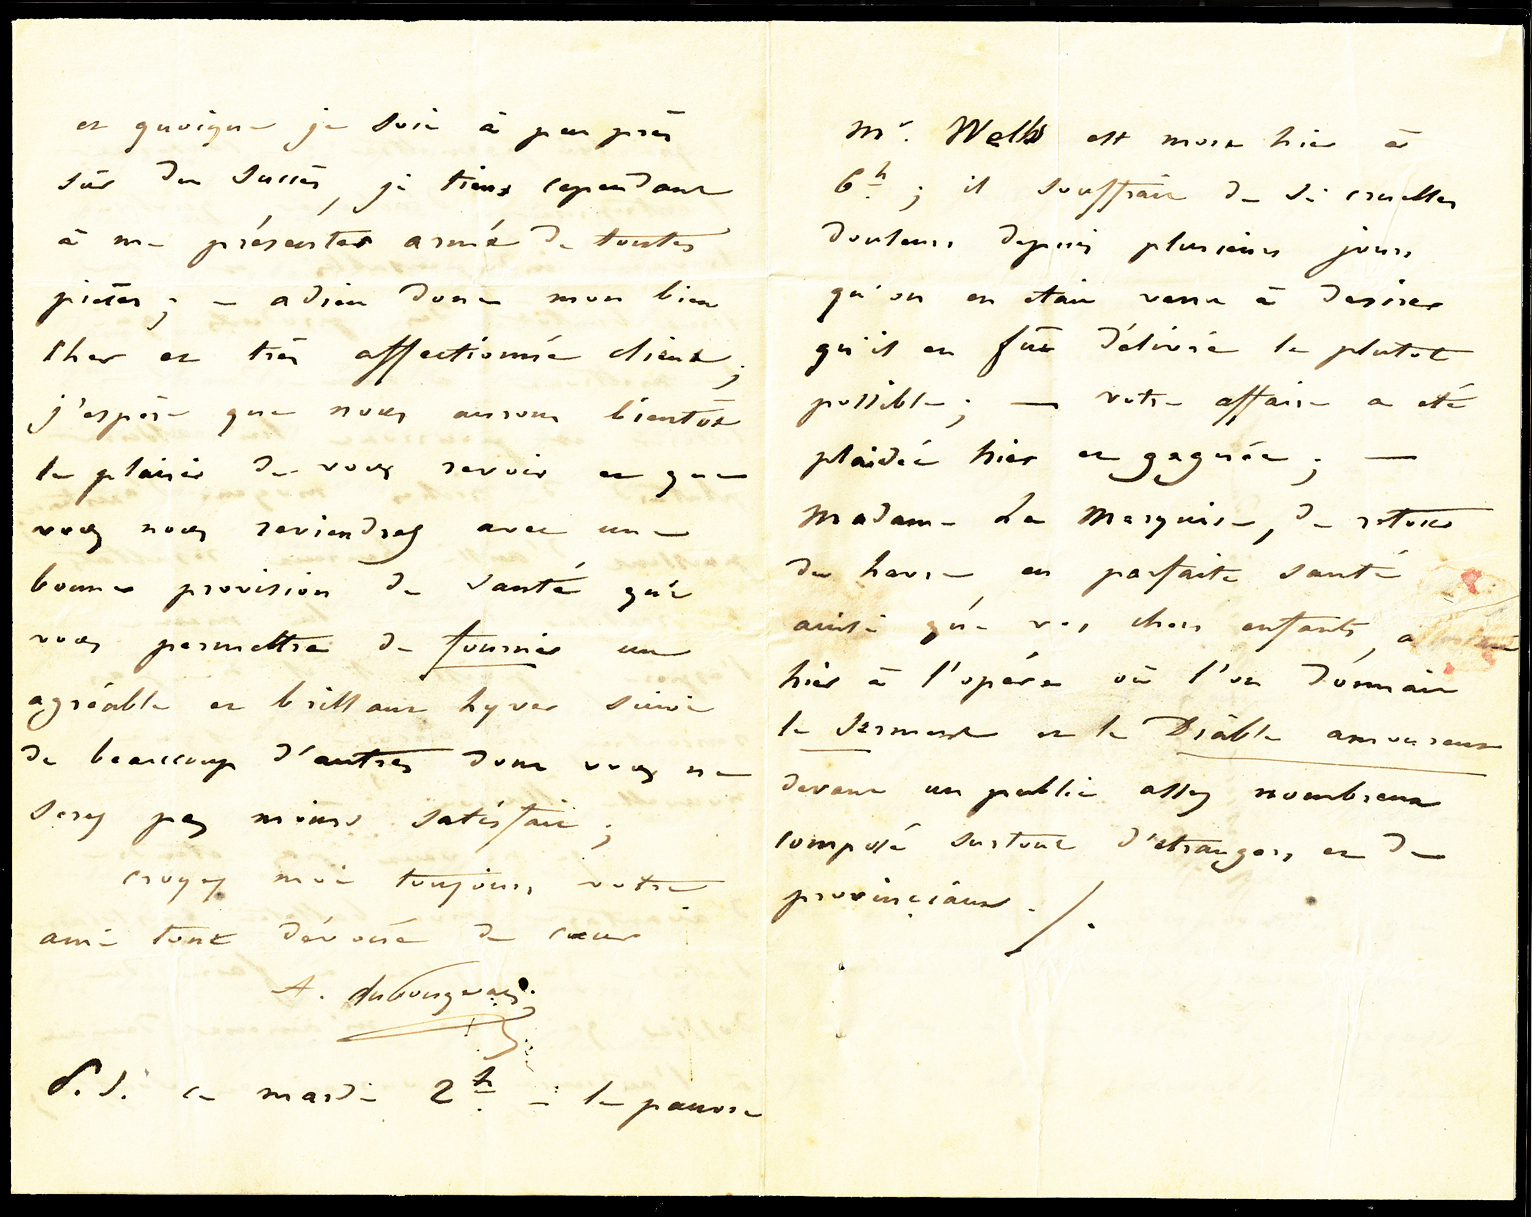 et quoique je sois à peu près
sûr du succès, je tiens cependant
à me présenter armé de toutes
pièces ; — adieu donc mon bien
cher et très affectionné client ;
j'espère que nous aurons bientôt
le plaisir de vous revoir et que
vous nous reviendrez avec une
bonne provision de santé qui
vous permettra de fournir un
agréable et brillant hyver suivi
de beaucoup d'autres dont vous ne
serez pas moins satisfait ;
croyez moi toujours votre
ami tout dévoué de cœur
A. Dubourgneuf
P.S. ce mardi 2h. — le pauvre
Mr. Wells est mort hier à
6h. ; il souffrait de si cruelles
douleurs depuis plusieurs jours
qu'on en etait venu à desirer
qu'il en fût délivré le plutot
possible ; — votre affaire a eté
plaidée hier et gagnée ; —
Madame La Marquise, de retour
du havre en parfaite santé
ainsi que vos chers enfants, a
hier à l'opéra où l'on donnait
le Serment et le Diable amoureux
devant un public assez nombreux
composé surtout d'etrangers et de
provinciaux ./.